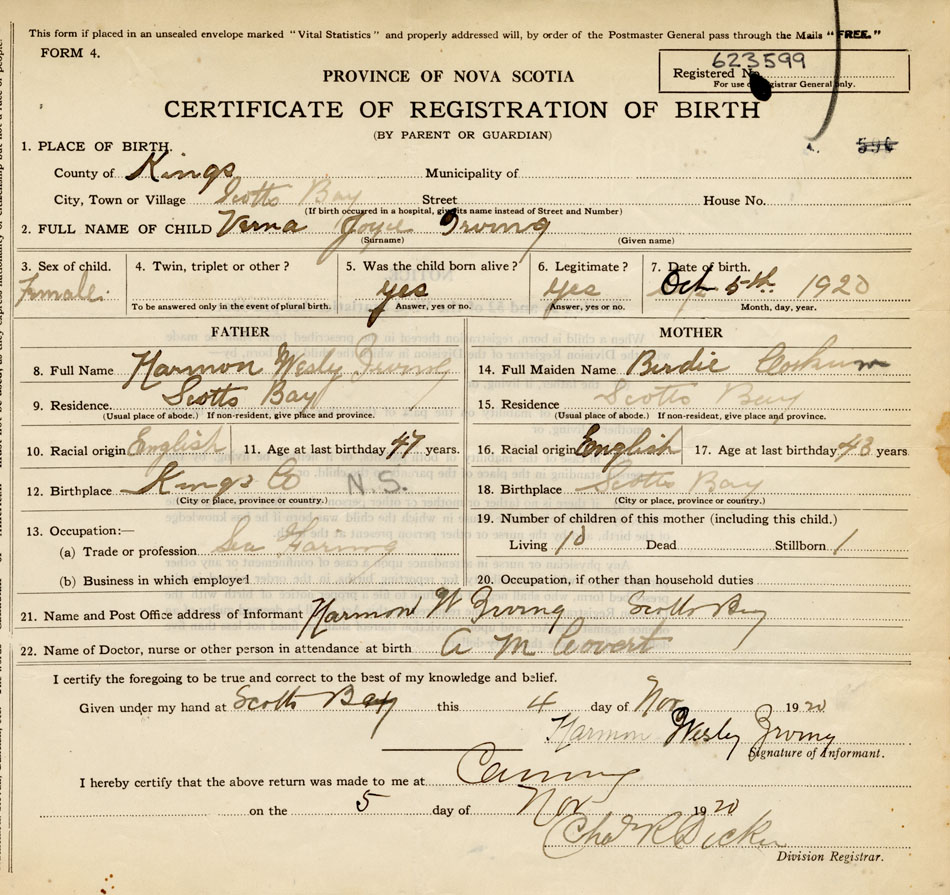 This form if placed in an unsealed envelope marked "Vital Statistics" and properly addressed will, by order of the Postmaster General pass through the Mails "FREE."
FORM 4.
623599
Registered No.
For use of Registrar General only.
PROVINCE OF NOVA SCOTIA
CERTIFICATE OF REGISTRATION OF BIRTH
(BY PARENT OR GUARDIAN)
1. PLACE OF BIRTH.
County of Kings Municipality of
City, Town or Village Scotts Bay Street House No.
(If birth occurred in a hospital, give its name instead of Street and Number)
2. FULL NAME OF CHILD Verna Joyce Irving
(Surname) (Given name)
3. Sex of child. 4. Twin, triplet or other? 5. Was the child born alive? 6. Legitimate? 7. Date of birth.
Female. yes yes Oct 5th 1920
To be answered only in the event of plural birth. Answer, yes or no. Answer, yes or no. Month, day, year.
FATHER MOTHER
8. Full Name Harmon Wesly Irving 14. Full Maiden Name Birdie
9. Residence. Scotts Bay 15. Residence Scotts Bay
(Usual place of abode.) If non-resident, give place and province. (Usual place of abode.) If non-resident, give place and province.
10. Racial origin English 11. Age at last birthday 47 years. 16. Racial origin English 17. Age at last birthday 43 years
12. Birthplace Kings Co N.S. 18. Birthplace Scotts Bay
(City or place, province or country.) (City or place, province or country.)
13. Occupation:— 19. Number of children of this mother (including this child.)
(a) Trade or profession Sea Faring Living 10 Dead Stillborn 1
(b) Business in which employed 20. Occupation, if other than household duties
21. Name and Post Office address of Informant Harmon W Irving Scotts Bay
22. Name of Doctor, nurse or other person in attendance at birth A M Covert
I certify the foregoing to be true and correct to the best of my knowledge and belief.
Given under my hand at Scotts Bay this 4 day of Nov 1920
Harmon Wesley Irving
Signature of Informant.
I hereby certify that the above return was made to me at Canning
on the 5 day of Nov 1920
Chas R Dickie
Division Registrar.